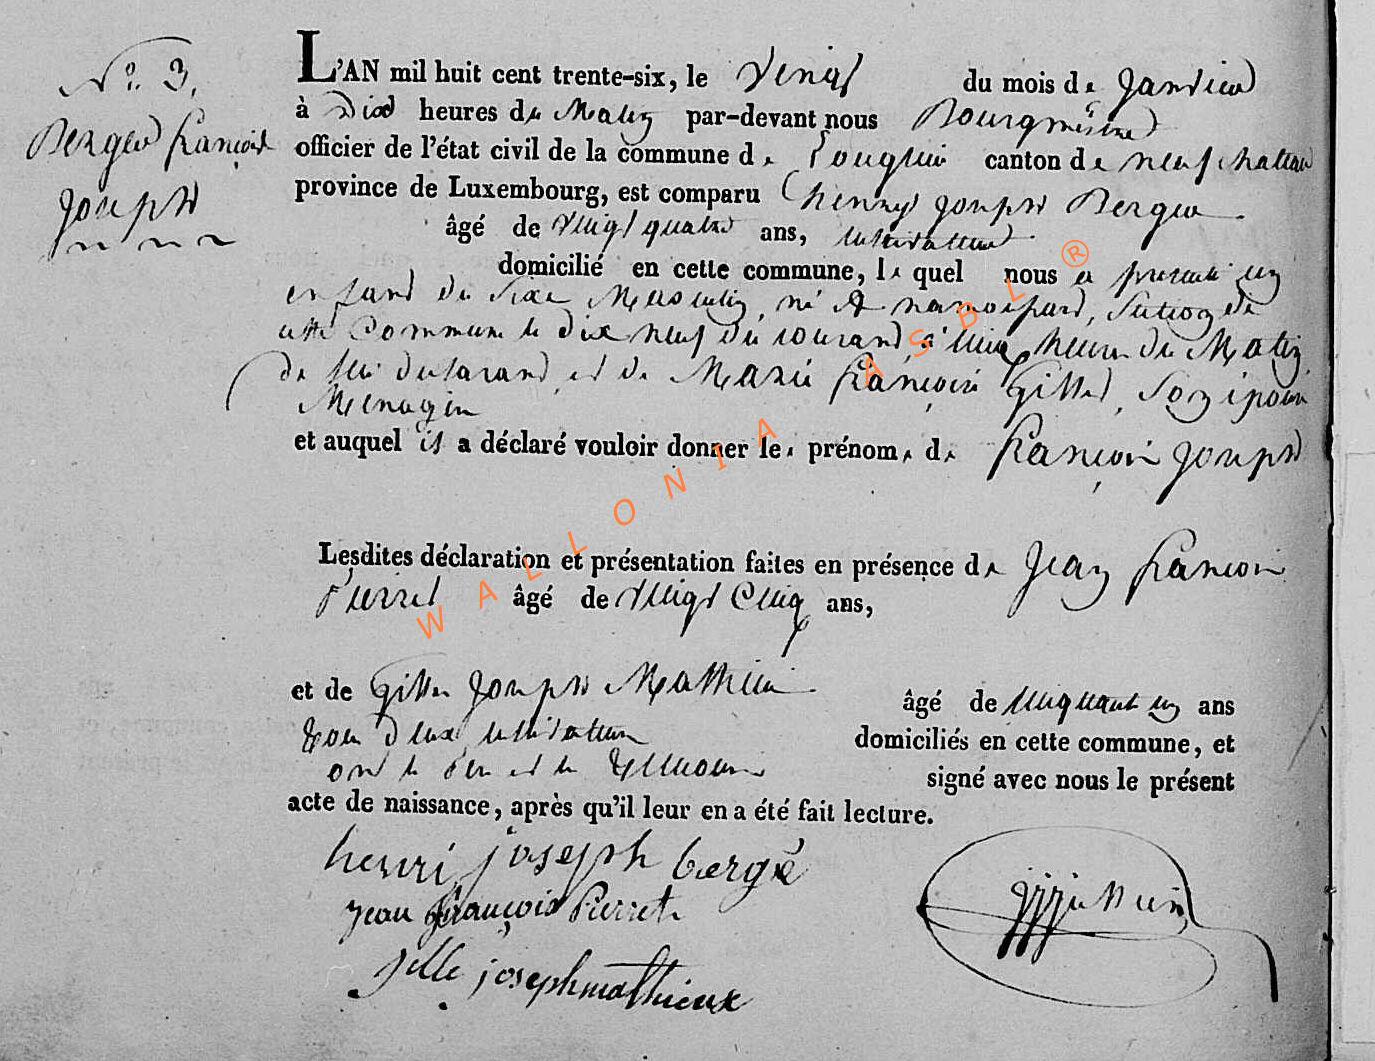 N°. 3.
Berger françois
Joseph
L'AN mil huit cent trente-six, le Vingt du mois de Janvier
à Dix heures du Matin par-devant nous Bourgmestre
officier de l'état civil de la commune de canton de neufchateau
province de Luxembourg, est comparu henry Joseph Berger
âgé de vingt quatre ans, cultivateur
domicilié en cette commune, lequel nous a presenté un
enfant du sexe Masculin, né à namoissart, Section de
cette Commune le dix neuf du courant à cinq heures du Matin
de lui declarant et de Marie françoise Gillet, son epouse
Menagere
et auquel il a déclaré vouloir donner les prénoms de françois Joseph
Lesdites déclaration et présentation faites en présence de Jean françois
Pierret âgé de Vingt Cinq ans,
et de Gilles Joseph Mathieu âgé de cinquante un ans
tous deux cultivateurs domiciliés en cette commune, et
ont le pere et les temoins signé avec nous le présent
acte de naissance, après qu'il leur en a été fait lecture.
henri joseph bergé
jean françois Pierret
gille joseph mathieux
WALLONIA ASBL ®